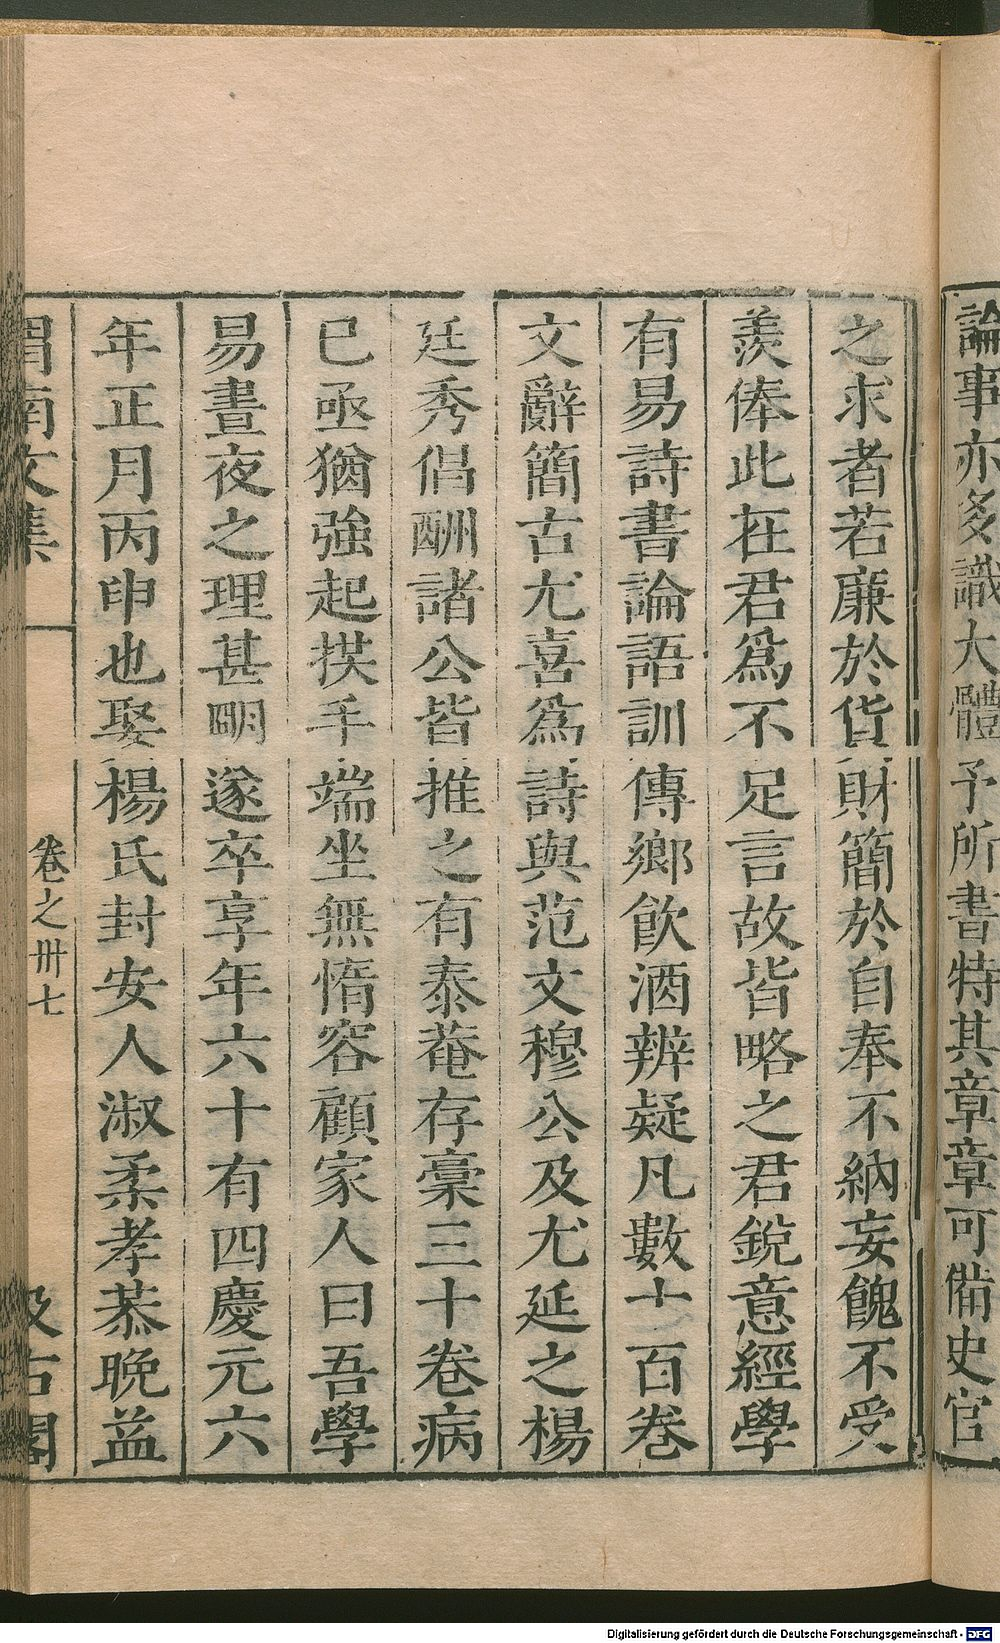 論事亦多識大體予所書特其章章可備史官
之求者若廉於貨財簡於自奉不納妄餽不受
羨俸此在君爲不足言故皆略之君銳意經學
有易詩書論語訓傳鄉飲酒辨疑凡數十百卷
文辭簡古尤喜爲詩與范文穆公及尤延之楊
廷秀倡酬諸公皆推之有泰菴存稾三十卷病
已亟猶強起拱手端坐無惰容顧家人曰吾學
易晝夜之理甚明遂卒享年六十有四慶元六
年正月丙申也娶楊氏封安人淑柔孝恭晚益
渭南文集 卷之卅七 汲古閣
Digitalisierung gefördert durch die Deutsche Forschungsgemeinschaft - DFG